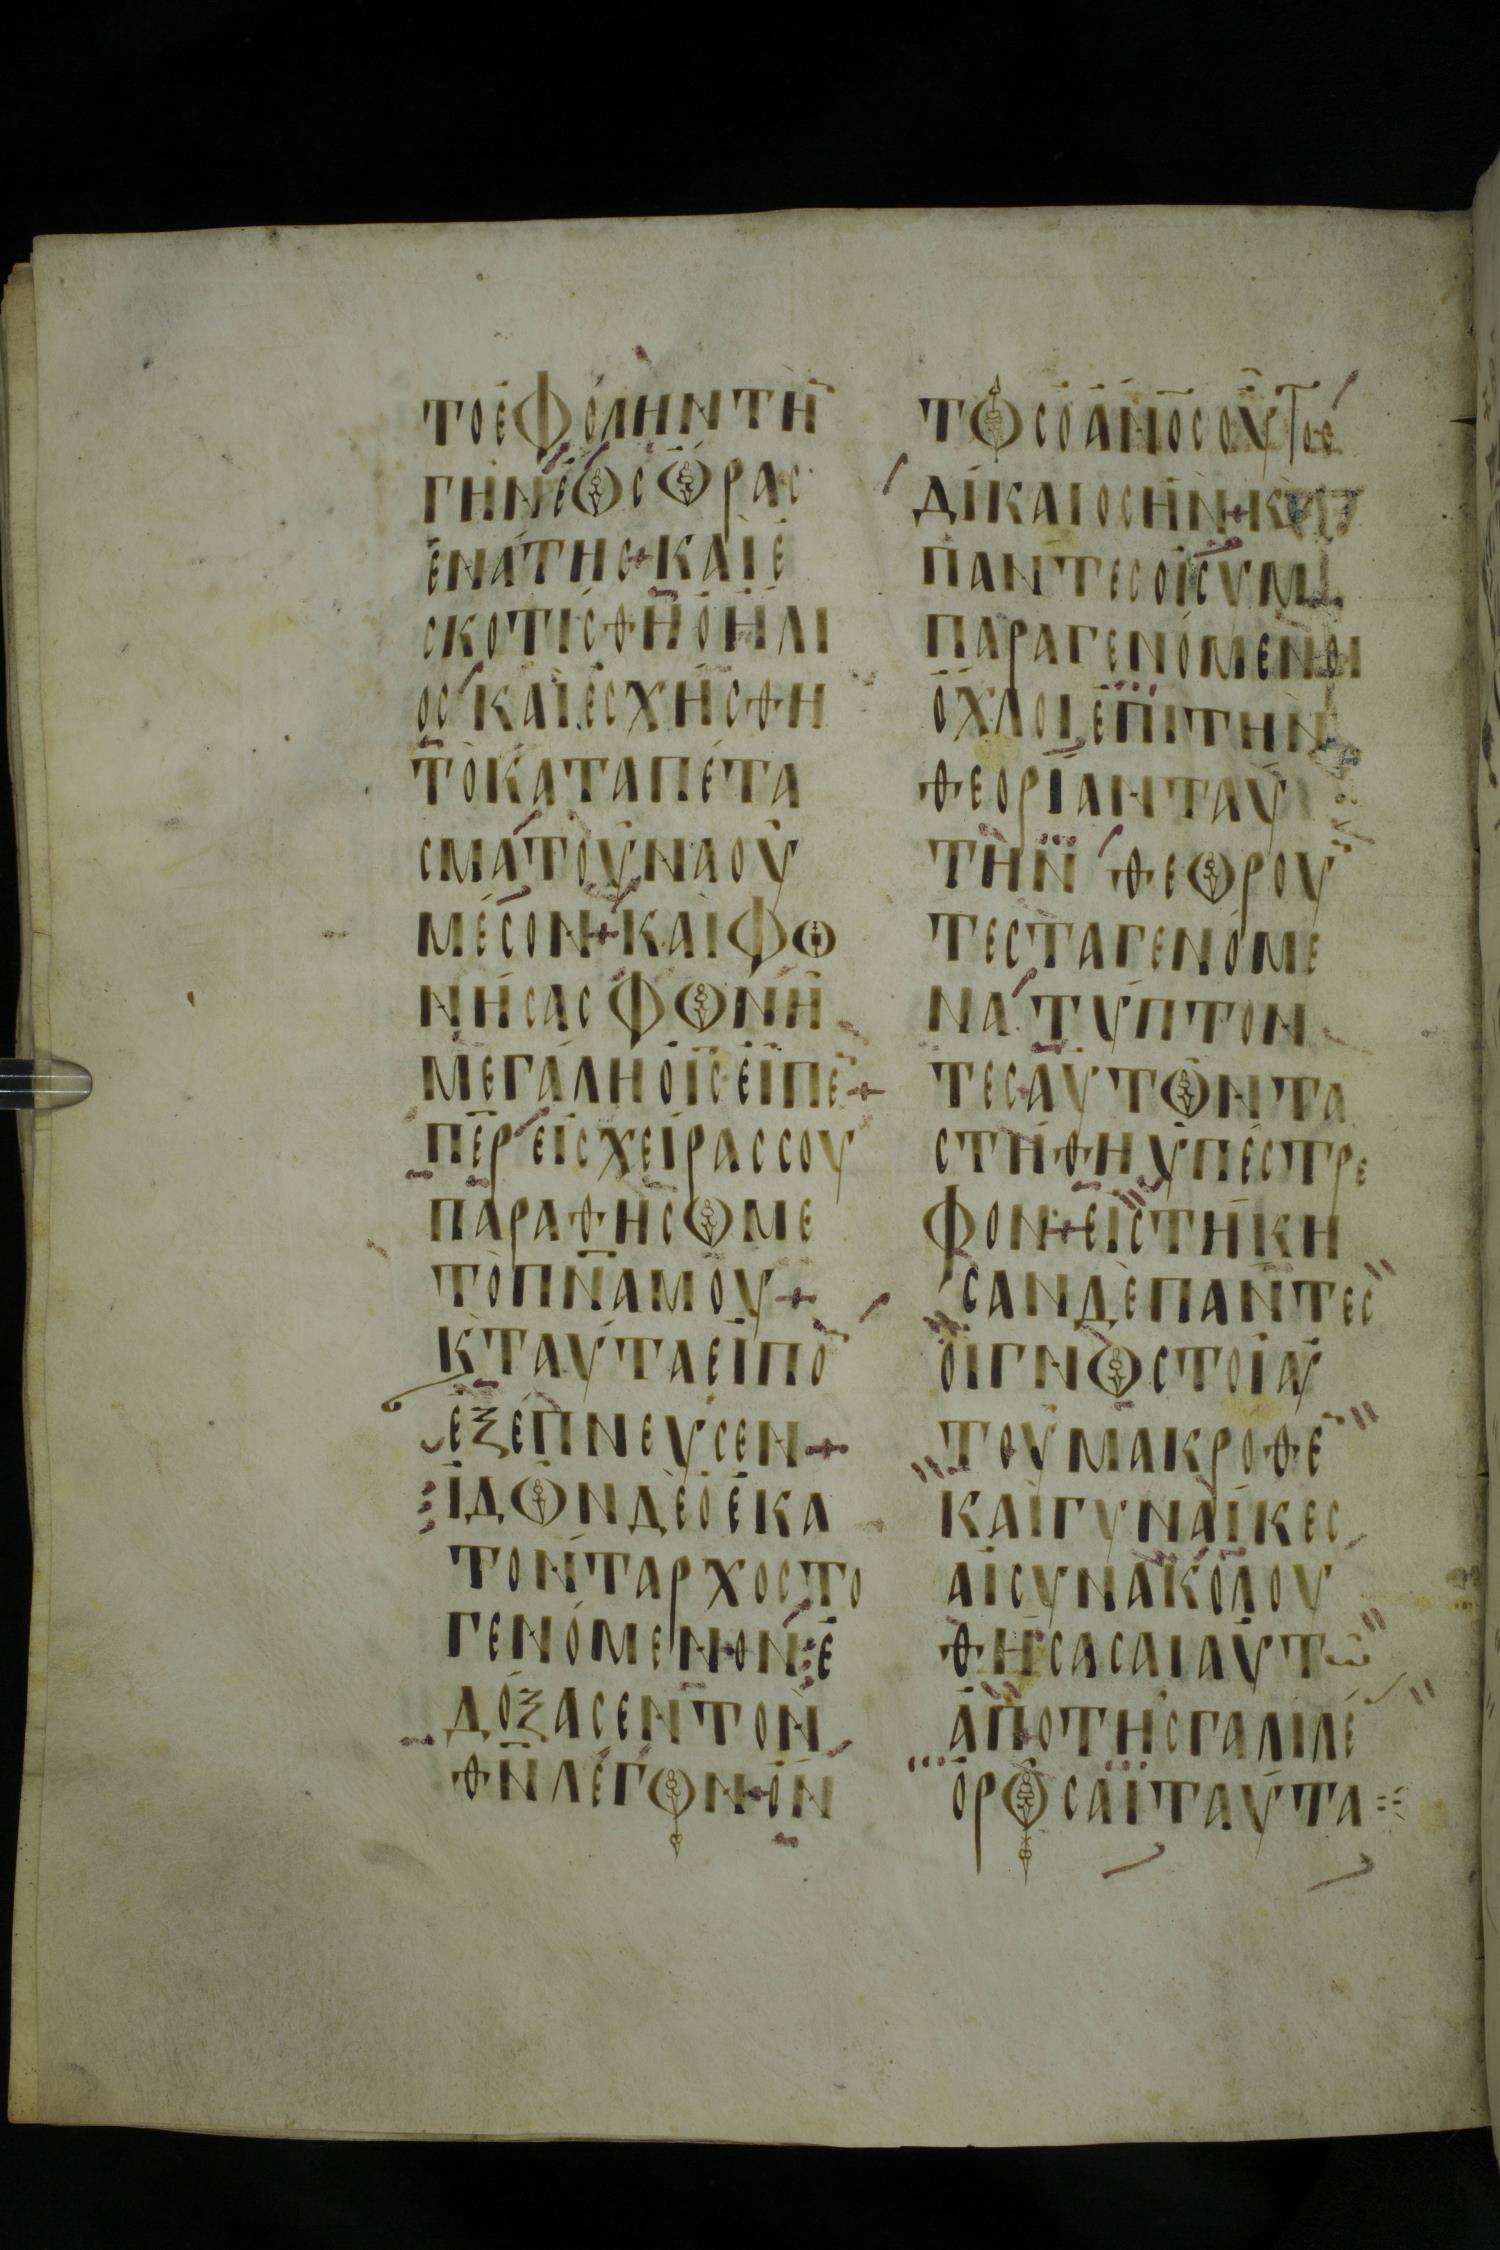 ΤΟΕΦΟΛΗΝΤΗ̅
ΓΗΝΕΩΣΩΡΑΣ
ΕΝΑΤΗΣ+ΚΑΙΕ
ΣΚΟΤΙΣΘΗΟΗΛΙ
ΟΣΚΑΙΕΣΧΗΣΘΗ
ΤΟΚΑΤΑΠΕΤΑ
ΣΜΑΤΟΥΝΑΟΥ
ΜΕΣΟΝ+ΚΑΙΦΩ
ΝΗΣΑΣΦΩΝΗ
ΜΕΓΑΛΗΟΙ̅Σ̅ΕΙΠΕ̅+
ΠΕΡΕΙΣΧΕΙΡΑΣΣΟΥ
ΠΑΡΑΘΗΣΩΜΕ
ΤΟΠΝ̅ΑΜΟΥ+
ΚΤΑΥΤΑΕΙΠΟ̅
ΕΞΕΠΝΕΥΣΕΝ+
ΙΔΩΝΔΕΟΕΚΑ
ΤΟΝΤΑΡΧΟΣΤΟ
ΓΕΝΟΜΕΝΟΝΕ
ΔΟΞΑΣΕΝΤΟΝ
Θ̅Ν̅ΛΕΓΩΝ+ΟΝ
ΤΩΣΟΑΝ̅ΟΣΟΥΤΟΣ
ΔΙΚΑΙΟΣΗΝ+Κ
ΠΑΝΤΕΣΟΙΣΥΜ
ΠΑΡΑΓΕΝΟΜΕΝΟΙ
ΟΧΛΟΙΕΠΙΤΗΝ
ΘΕΟΡΙΑΝΤΑΥ
ΤΗΝΘΕΩΡΟΥ̅
ΤΕΣΤΑΓΕΝΟΜΕ
ΝΑΤΥΠΤΟΝ
ΤΕΣΑΥΤΩΝΤΑ
ΣΤΗΘΗΥΠΕΣΤΡΕ
ΦΟΝ+ΕΙΣΤΗΚΗ
ΣΑΝΔΕΠΑΝΤΕΣ
ΟΙΓΝΩΣΤΟΙΑΥ
ΤΟΥΜΑΚΡΟΘΕ̅
ΚΑΙΓΥΝΑΙΚΕΣ
ΑΙΣΥΝΑΚΟΛΟΥ
ΘΗΣΑΣΑΙΑΥΤω
ΑΠΟΤΗΣΓΑΛΙΛΕ
ΟΡΩΣΑΙΤΑΥΤΑ